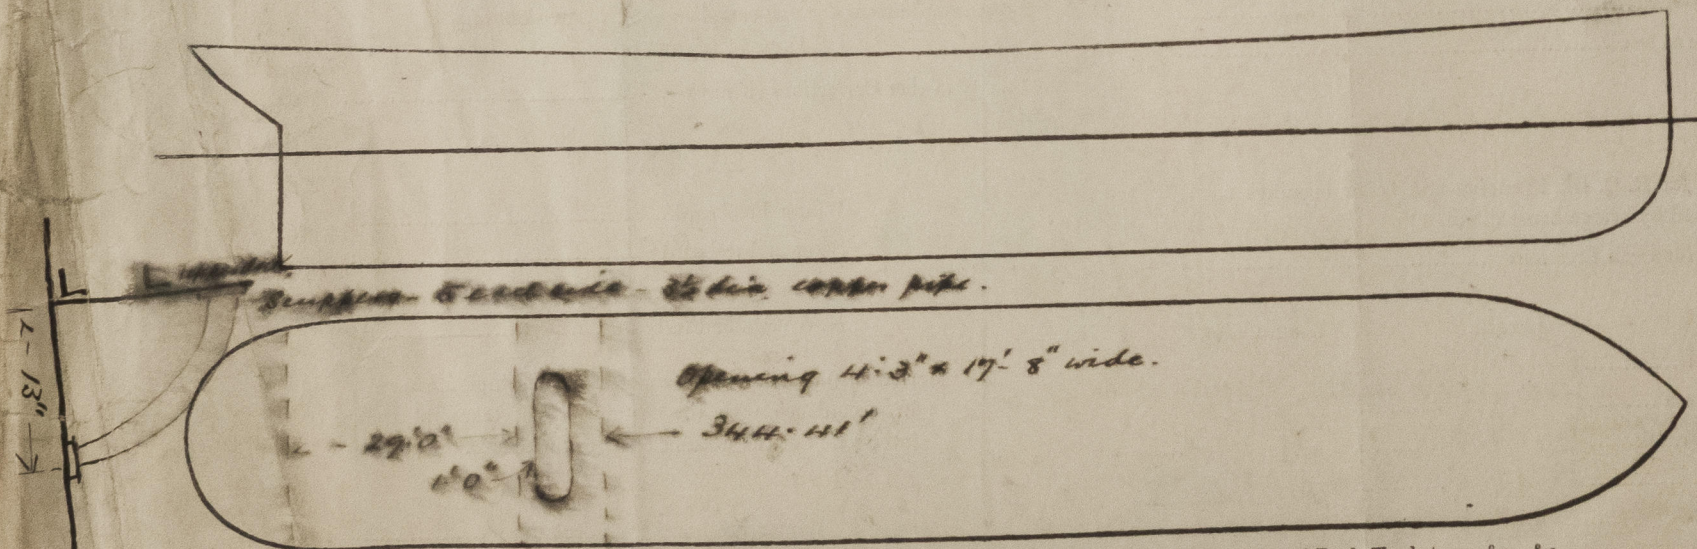 Scuppers - 5 each side - 2½ dia. copper pipe.
Opening 4'-3" x 17'-8" wide.
29'0"
344.41'
1'0"
13"